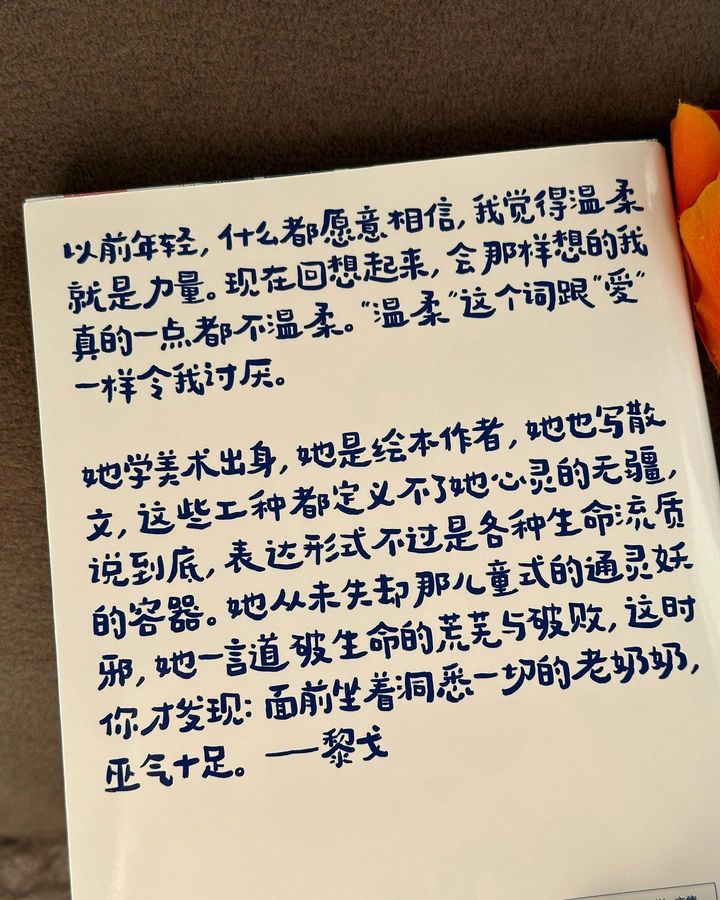 以前年轻，什么都愿意相信，我觉得温柔
就是力量。现在回想起来，会那样想的我
真的一点都不温柔。“温柔”这个词跟“爱”
一样令我讨厌。
她学美术出身，她是绘本作者，她也写散
文，这些工种都定义不了她心灵的无疆，
说到底，表达形式不过是各种生命流质
的容器。她从未失却那儿童式的通灵妖
邪，她一言道破生命的荒芜与破败，这时
你才发现：面前坐着洞悉一切的老奶奶，
巫气十足。——黎戈